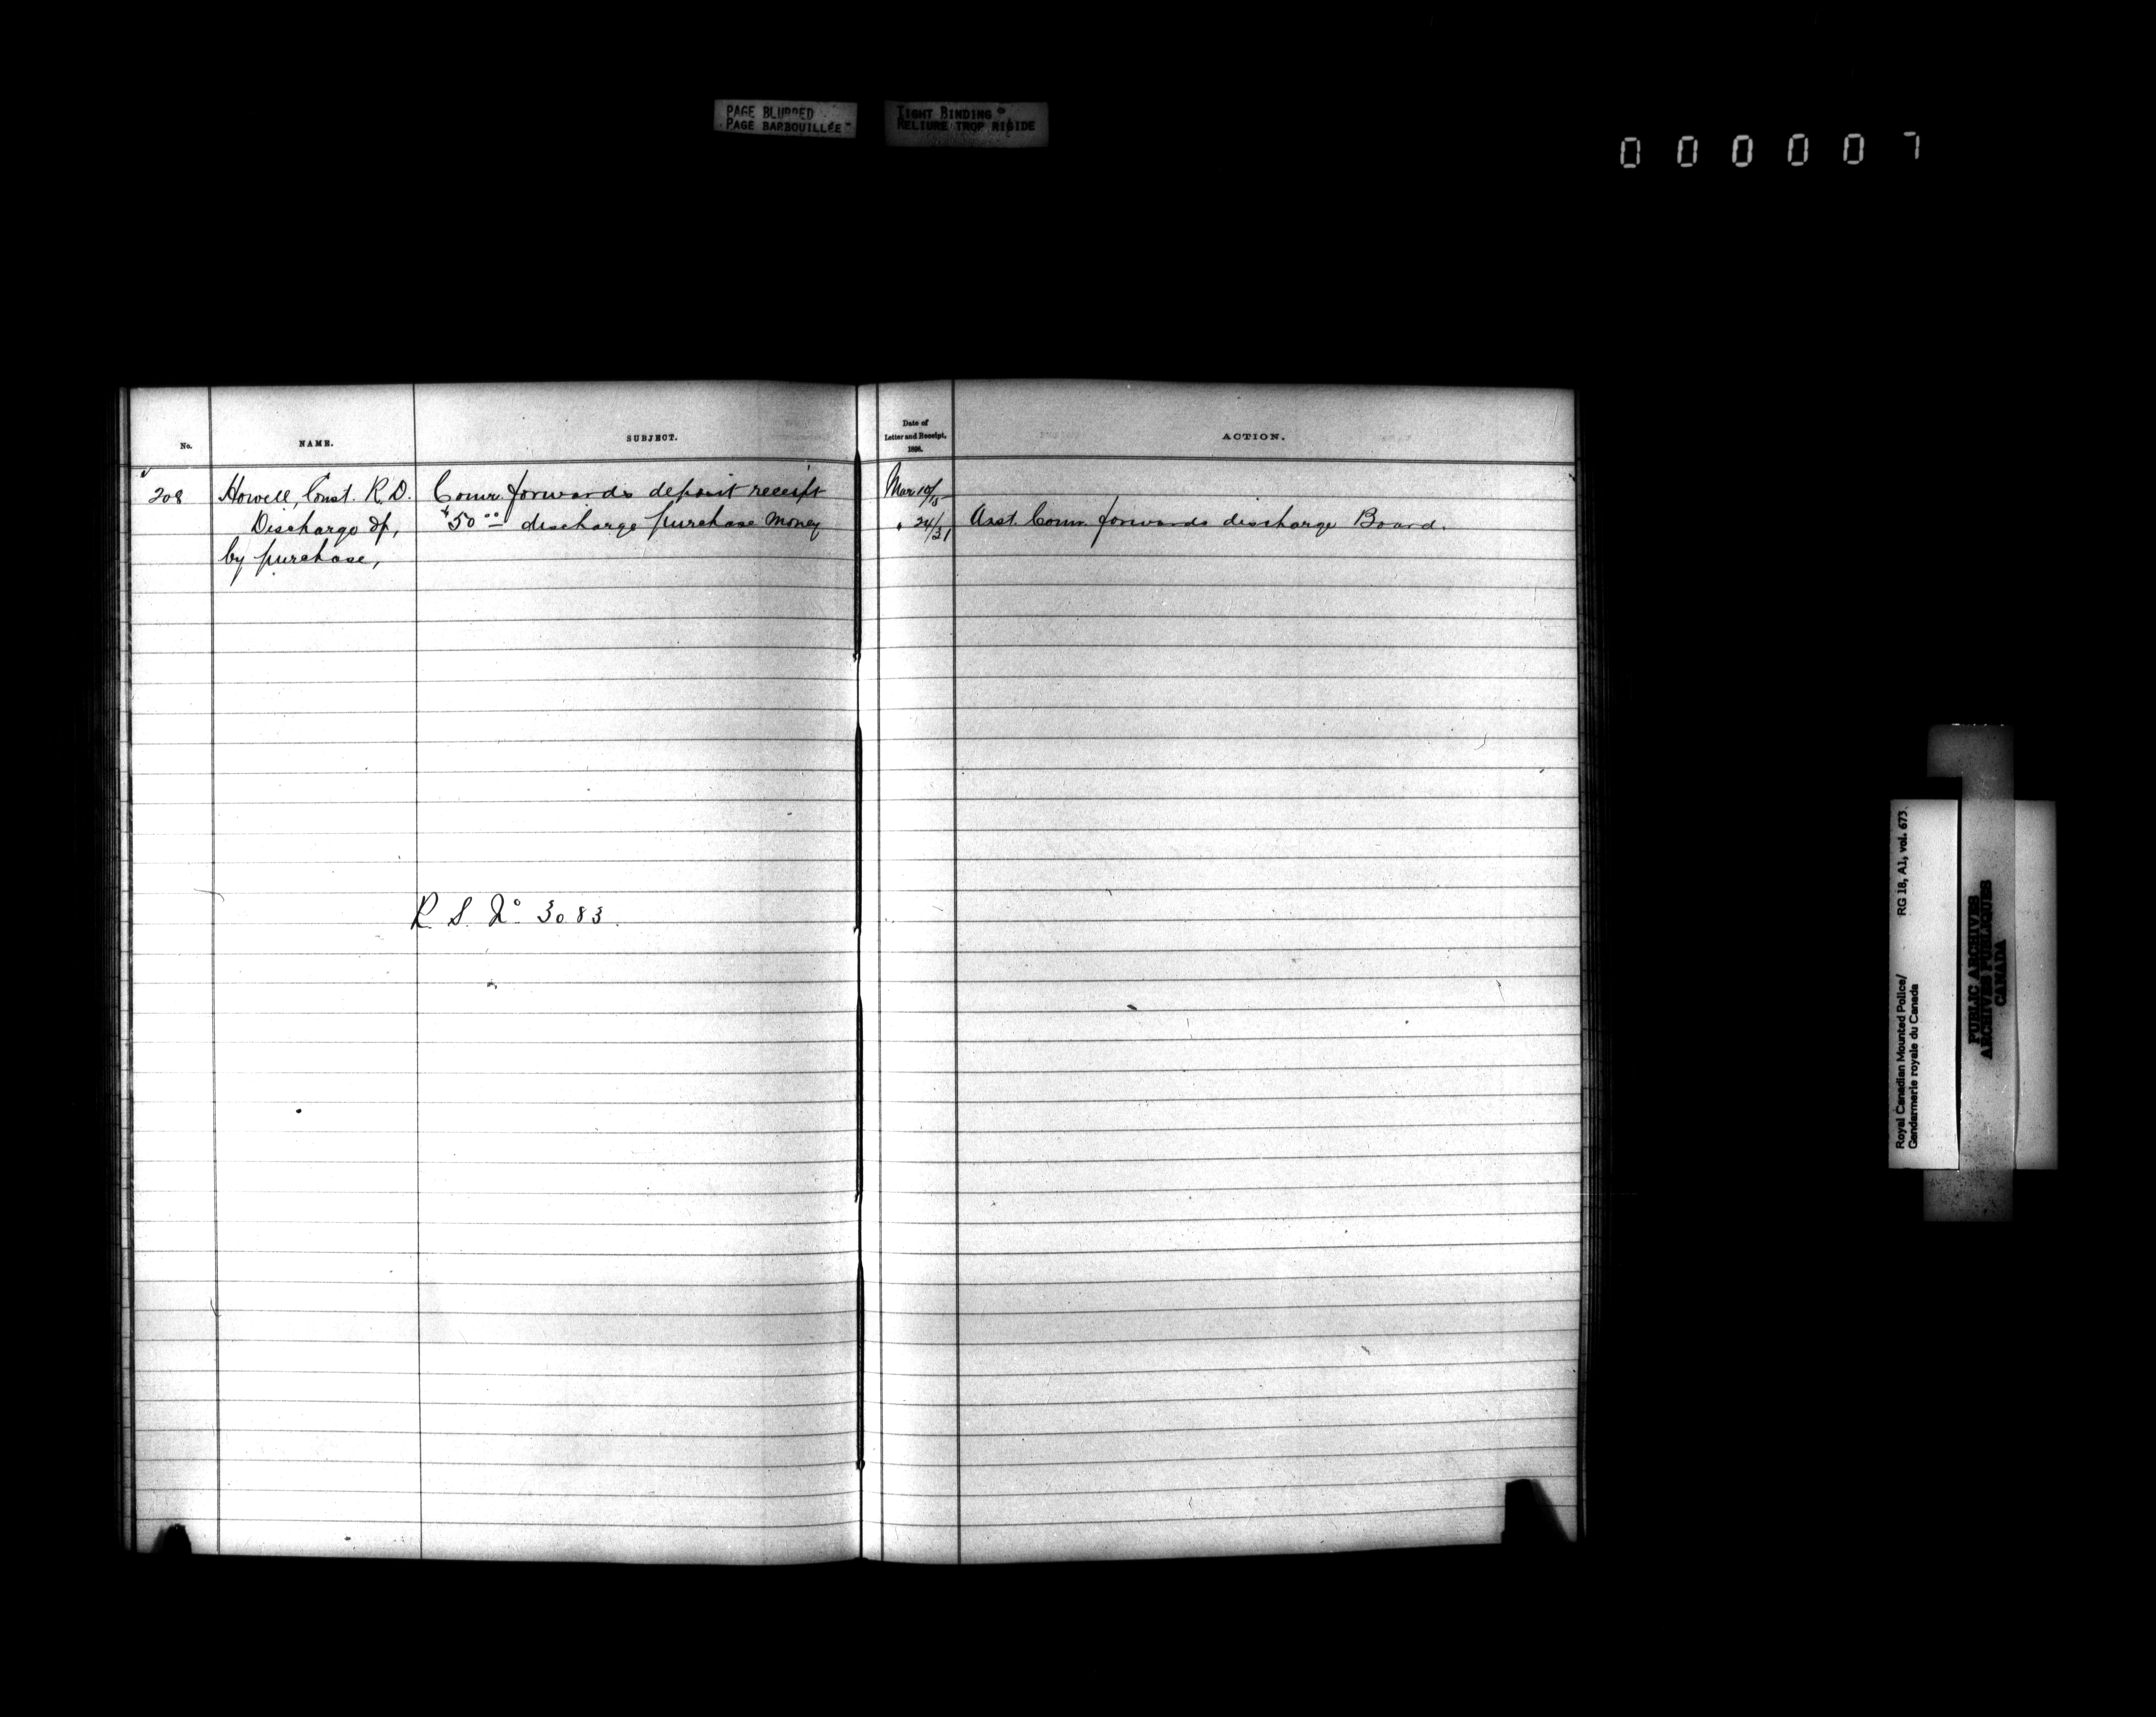 PAGE BLURRED
PAGE BARBOUILLÉE
TIGHT BINDING
RELIURE TROP RIGIDE
000007
No.
NAME.
SUBJECT.
Date of
Letter and Receipt,
1896.
ACTION.
208
Howell, Const. R. D.
Discharge of,
by purchase,
Comr. forwards deposit receipt
$50 00 discharge purchase money
Mar 10/15
" 24/31
Asst. Comr. forwards discharge Board.
R. S. No 3083.
Royal Canadian Mounted Police/
Gendarmerie royale du Canada
RG 18, A1, vol. 673
PUBLIC ARCHIVES
ARCHIVES PUBLIQUES
CANADA